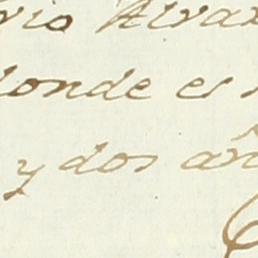 Alvar
donde es
y dos añ